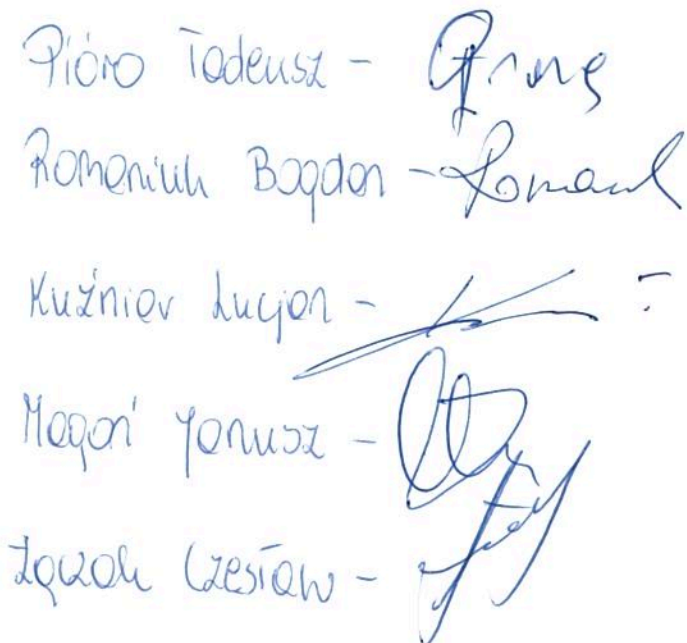 Pióro Tadeusz -
Romaniuk Bogdan -
Kuźniar Lucjan -
Magoń Janusz -
Łączak Czesław -